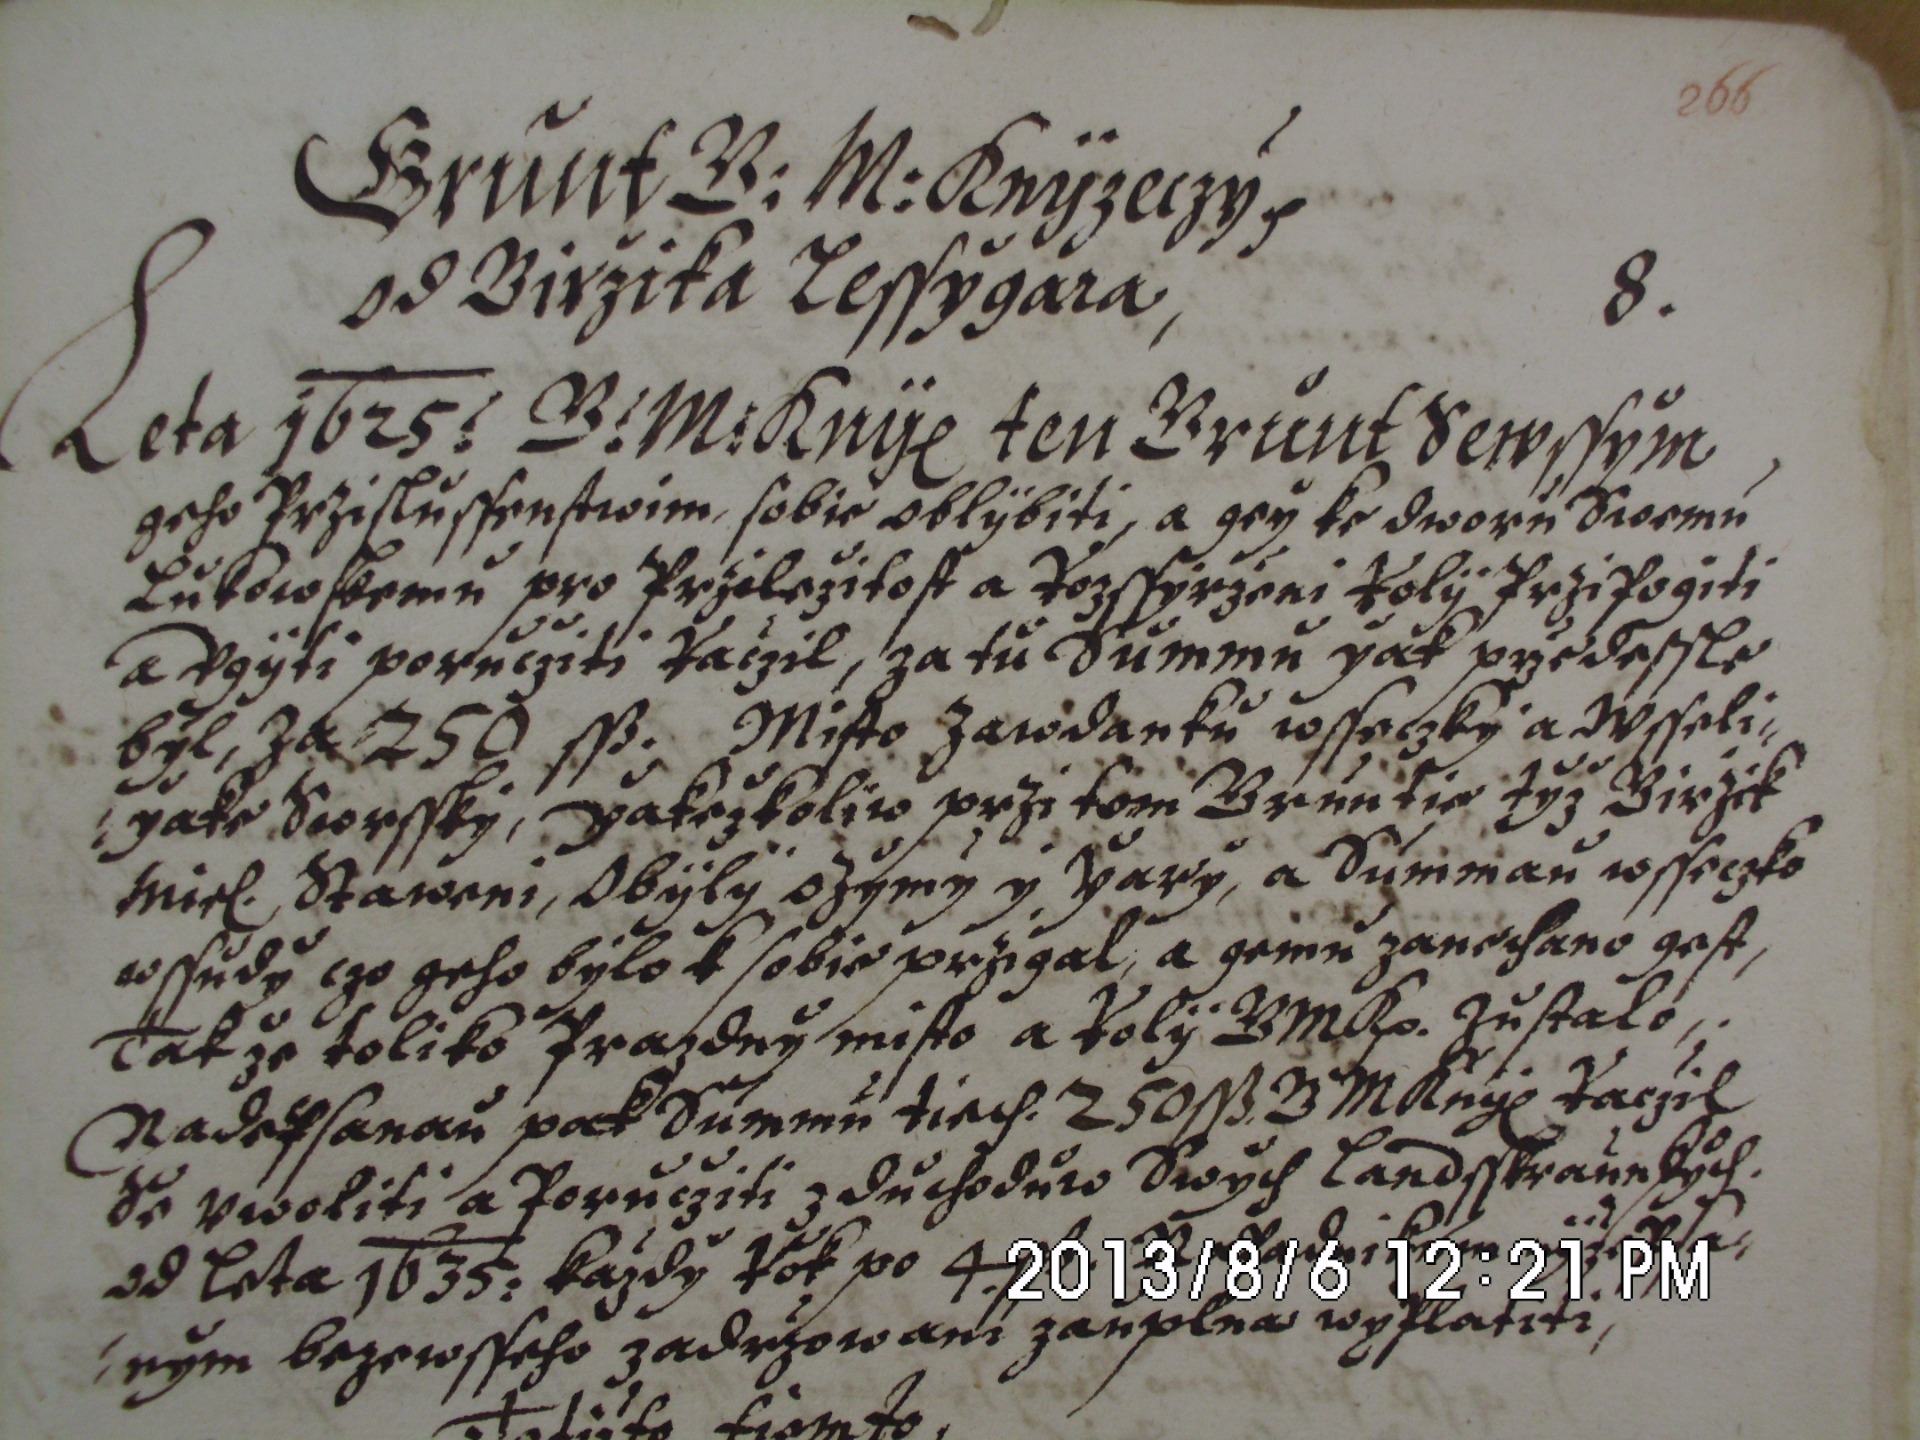 266
Grunt G: M: Knÿzeczý,
od Girzika Lessygara,
8.
Leta 1625: G: M: Knÿz ten Grunt Sewssym
geho Przislussenstwim, sobie oblÿbiti, a geÿ ke dworu Swemu
Lukowskemu pro Przilezitost a Rozssÿrzeni Rolÿ Przipogiti
a Vgÿti porucziti Raczil, za tu Summu yak przedessle
byl, za 250 ssß. Misto zawdanku wsseczky a Wsseli-
yake Sworssky, yakezkoliw przi tom Gruntie tyz Girzik
miel. Staweni, Obÿlÿ ozymy y Yary, a Summau wsseczko
wssudy czo geho bylo k sobie przigal, a gemu zanechano gest,
Takze toliko Prazdny misto a Rolÿ GMKz. Zustalo,
Nadepsanau pak Summu tiech. 250 ssß. G M Knÿz Raczil
Se Vwoliti a Porucziti z duchoduw Swych Landsskraunskych.
od Leta 1635: kazdy Rok po 4
2013/8/6 12:21 PM
nym bezewsseho zadrzowani zauplna wyplatiti,
tiemto,